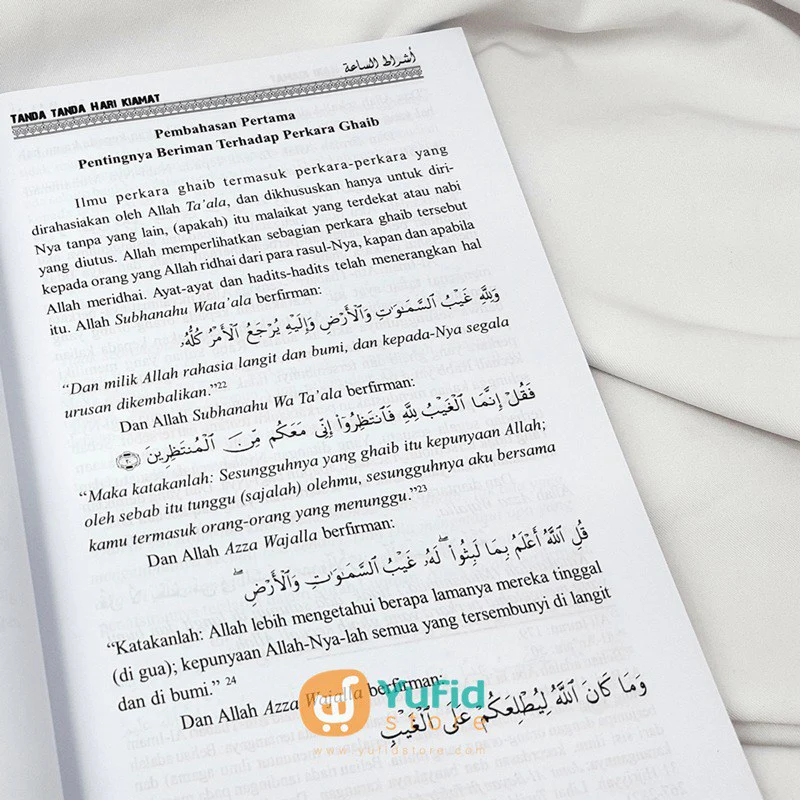 TANDA TANDA HARI KIAMAT أشراط الساعة
Pembahasan Pertama
Pentingnya Beriman Terhadap Perkara Ghaib
Ilmu perkara ghaib termasuk perkara-perkara yang
dirahasiakan oleh Allah Ta'ala, dan dikhususkan hanya untuk diri-
Nya tanpa yang lain, (apakah) itu malaikat yang terdekat atau nabi
yang diutus. Allah memperlihatkan sebagian perkara ghaib tersebut
kepada orang yang Allah ridhai dari para rasul-Nya, kapan dan apabila
Allah meridhai. Ayat-ayat dan hadits-hadits telah menerangkan hal
itu. Allah Subhanahu Wata'ala berfirman:
وَلِلَّهِ غَيْبُ ٱلسَّمَٰوَٰتِ وَٱلْأَرْضِ وَإِلَيْهِ يُرْجَعُ ٱلْأَمْرُ كُلُّهُۥ
“Dan milik Allah rahasia langit dan bumi, dan kepada-Nya segala
urusan dikembalikan.”22
Dan Allah Subhanahu Wa Ta'ala berfirman:
فَقُلْ إِنَّمَا ٱلْغَيْبُ لِلَّهِ فَٱنتَظِرُوٓا۟ إِنِّى مَعَكُم مِّنَ ٱلْمُنتَظِرِينَ ٢٠
“Maka katakanlah: Sesungguhnya yang ghaib itu kepunyaan Allah;
oleh sebab itu tunggu (sajalah) olehmu, sesungguhnya aku bersama
kamu termasuk orang-orang yang menunggu.”23
Dan Allah Azza Wajalla berfirman:
قُلِ ٱللَّهُ أَعْلَمُ بِمَا لَبِثُوا۟ ۖ لَهُۥ غَيْبُ ٱلسَّمَٰوَٰتِ وَٱلْأَرْضِ ۖ
“Katakanlah: Allah lebih mengetahui berapa lamanya mereka tinggal
(di gua); kepunyaan Allah-Nya-lah semua yang tersembunyi di langit
dan di bumi.” 24
Dan Allah Azza Wajalla berfirman:
وَمَا كَانَ ٱللَّهُ لِيُطْلِعَكُمْ عَلَى ٱلْغَيْبِ
YuFid
store
www.yufidstore.com